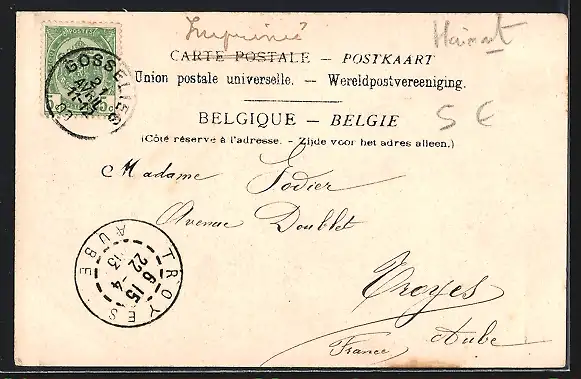 Imprimé
Hainaut
CARTE POSTALE – POSTKAART
Union postale universelle. — Wereldpostvereeniging.
BELGIQUE – BELGIE
(Côté réservé à l'adresse. - Zijde voor het adres alleen.)
5 €
GOSSELIES
21
AVRIL
POSTES
5c
Madame Godier
Avenue Doublet
Troyes
Aube
France
TROYES
6 15
22 - 4
13
AUBE